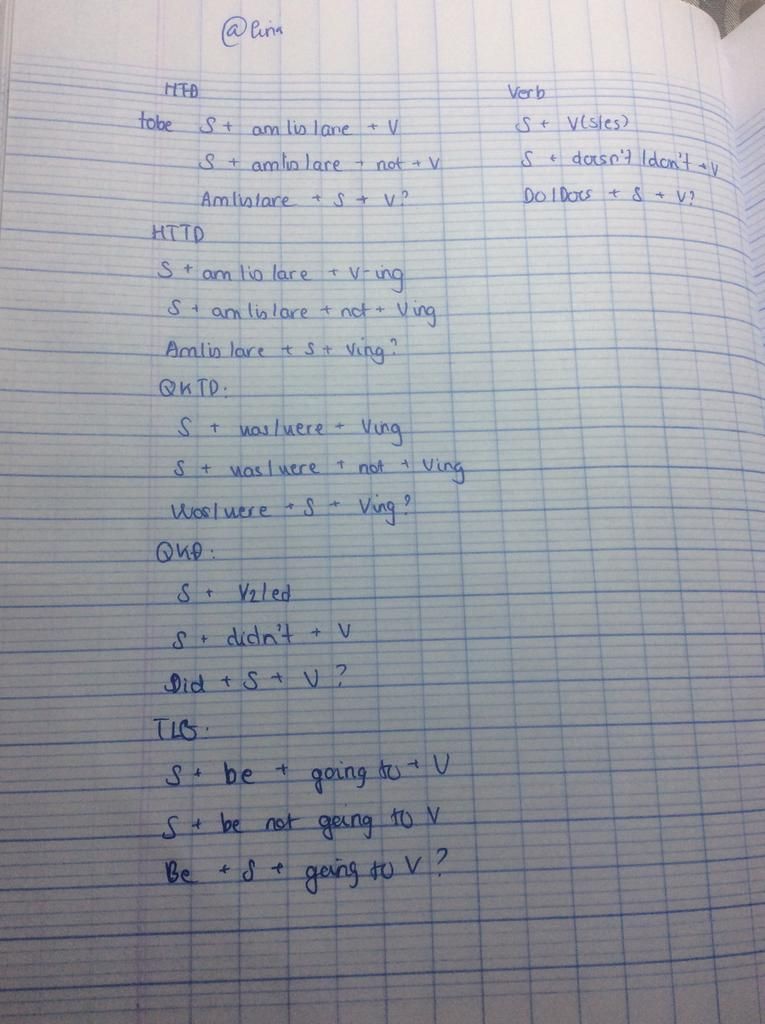 @ lina
HTĐ Verb
tobe S + am/is/are + V S + V(s/es)
S + am/is/are + not + V S + doesn't/don't + V
Am/is/are + S + V? Do/Does + S + V?
HTTD
S + am/is/are + V-ing
S + am/is/are + not + Ving
Am/is/are + S + Ving?
QKTD:
S + was/were + Ving
S + was/were + not + Ving
Was/were + S + Ving?
QKĐ:
S + V2/ed
S + didn't + V
Did + S + V?
TLG:
S + be + going to + V
S + be not going to V
Be + S + going to V?